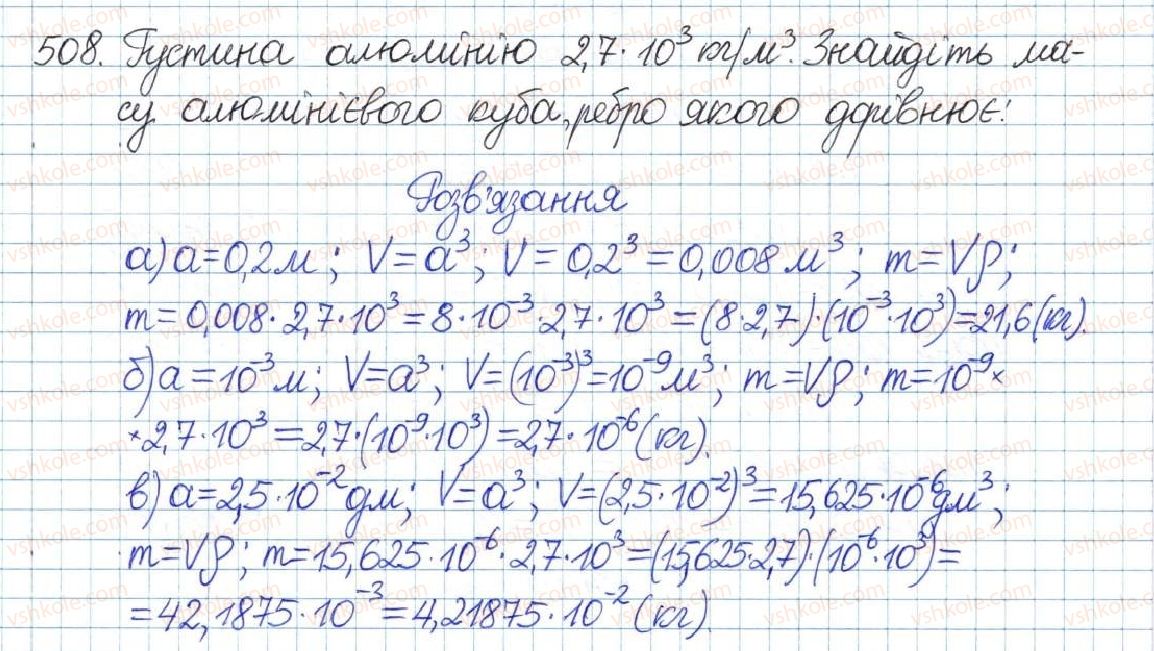 508. Густина алюмінію 2,7·10³ кг/м³. Знайдіть ма-
су алюмінієвого куба, ребро якого дорівнює:
Розв'язання
а) a=0,2м; V=a³; V=0,2³=0,008 м³; m=Vρ;
m=0,008·2,7·10³=8·10⁻³·2,7·10³=(8·2,7)·(10⁻³·10³)=21,6(кг).
б) a=10⁻³м; V=a³; V=(10⁻³)³=10⁻⁹м³; m=Vρ; m=10⁻⁹×
×2,7·10³=2,7·(10⁻⁹·10³)=2,7·10⁻⁶(кг).
в) a=2,5·10⁻²дм; V=a³; V=(2,5·10⁻²)³=15,625·10⁻⁶дм³;
m=Vρ; m=15,625·10⁻⁶·2,7·10³=(15,625·2,7)·(10⁻⁶·10³)=
=42,1875·10⁻³=4,21875·10⁻²(кг).